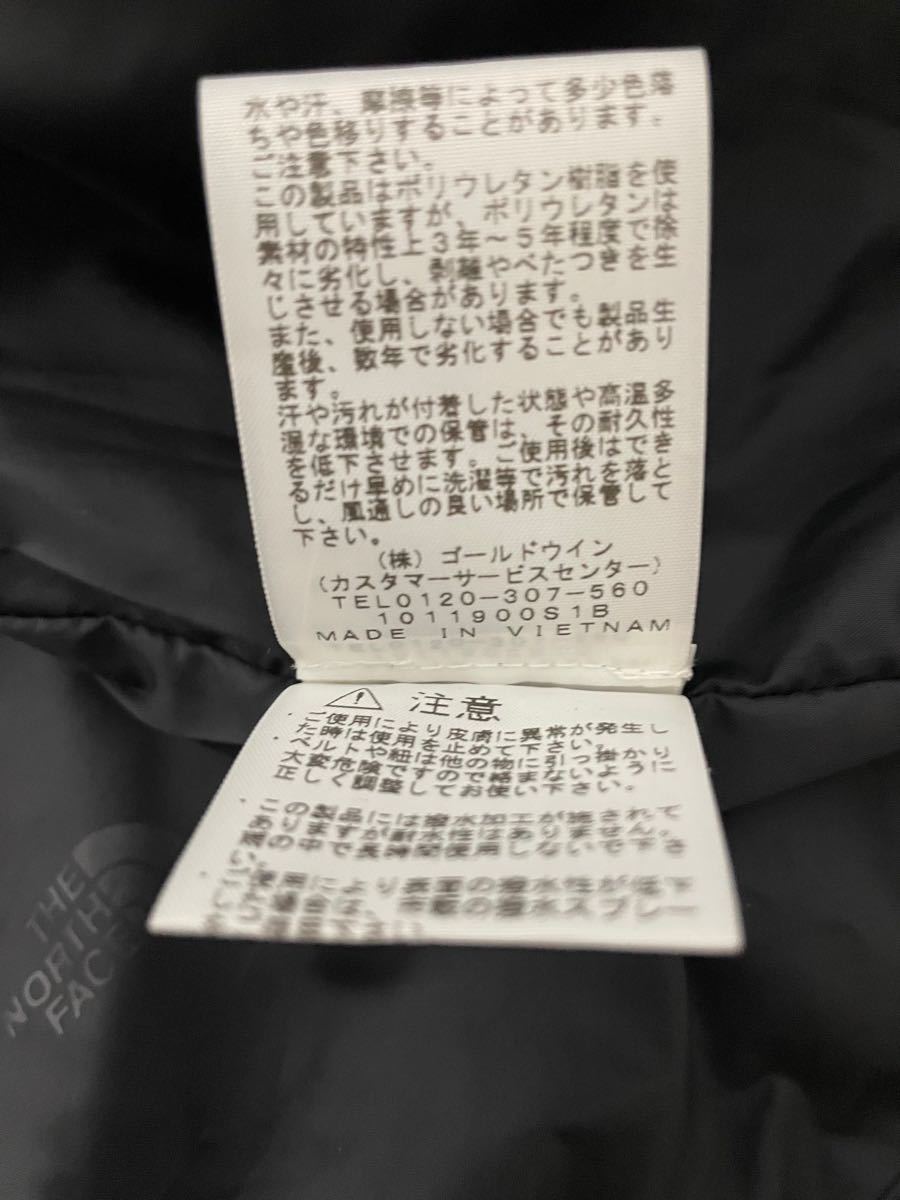 水や汗、摩擦等によって多少色落
ちや色移りすることがあります。
ご注意下さい。
この製品はポリウレタン樹脂を使
用していますが、ポリウレタンは
素材の特性上3年〜5年程度で除
々に劣化し、剥離やべたつきを生
じさせる場合があります。
また、使用しない場合でも製品生
産後、数年で劣化することがあり
ます。
汗や汚れが付着した状態や高温多
湿な環境での保管は、その耐久性
を低下させます。ご使用後はでき
るだけ早めに洗濯等で汚れを落と
し、風通しの良い場所で保管して
下さい。
(株)ゴールドウイン
(カスタマーサービスセンター)
TEL0120-307-560
1011900S1B
MADE IN VIETNAM
注意
・ご使用により皮膚に異常が発生し
た時は使用を止めて下さい。
・ベルトや紐は他の物に引っ掛かり
大変危険ですので絡まないように
正しく調整してお使い下さい。
・この製品には撥水加工が施されて
ありますが耐水性はありません。
雨の中で長時間使用しないで下さ
い。
・ご使用により表面の撥水性が低下
した場合は、市販の撥水スプレー
THE
NORTH
FACE